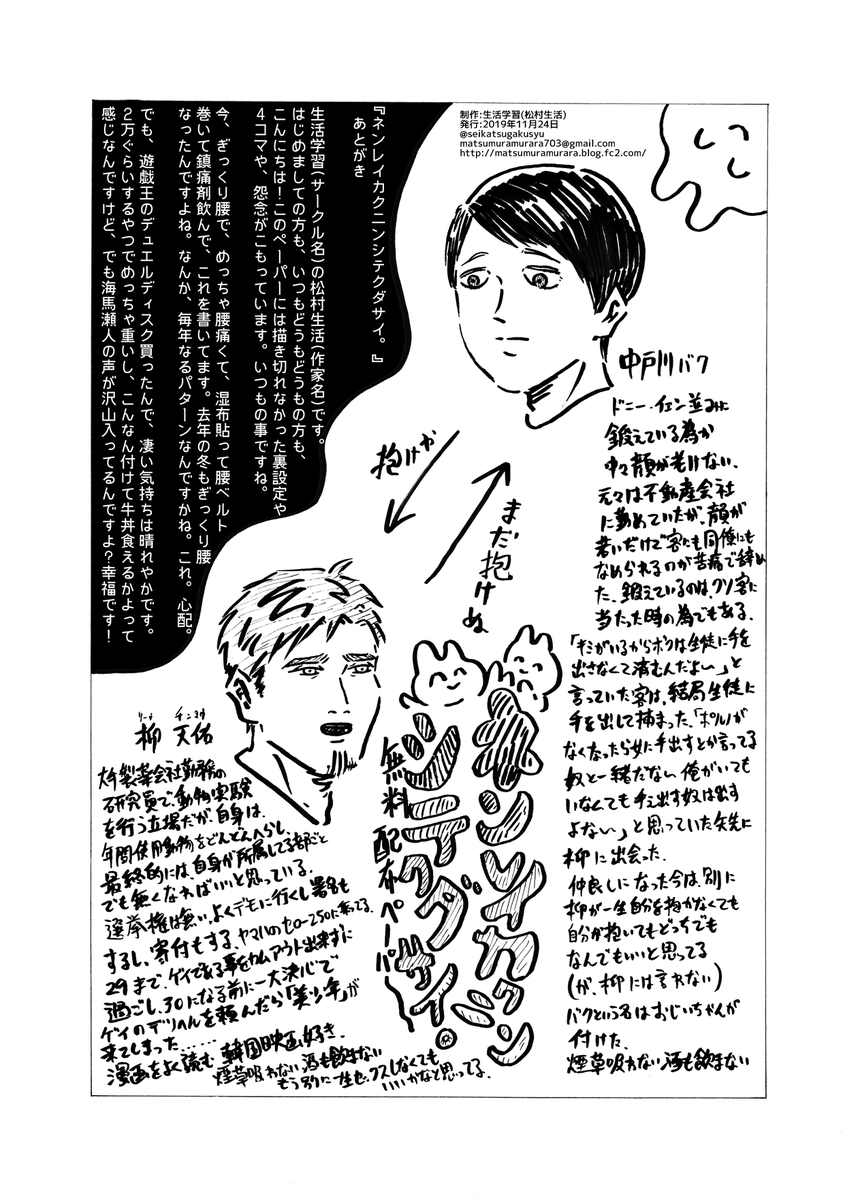 制作:生活学習(松村生活)
発行:2019年11月24日
@seikatsugakusyu
matsumuramurara703@gmail.com
http://matsumuramurara.blog.fc2.com/
『ネンレイカクニンシテクダサイ。』
あとがき
生活学習(サークル名)の松村生活(作家名)です。
はじめましての方も、いつもどうもどうもの方も、
こんにちは!このペーパーには描き切れなかった裏設定や
4コマや、怨念がこもっています。いつもの事ですね。
今、ぎっくり腰で、めっちゃ腰痛くて、湿布貼って腰ベルト
巻いて鎮痛剤飲んで、これを書いてます。去年の冬もぎっくり腰
なったんですよね。なんか、毎年なるパターンなんですかね。これ。心配。
でも、遊戯王のデュエルディスク買ったんで、凄い気持ちは晴れやかです。
2万ぐらいするやつでめっちゃ重いし、こんなん付けて牛丼食えるかよって
感じなんですけど、でも海馬瀬人の声が沢山入ってるんですよ?幸福です!
中戸川バク
ドニー・イェン並みに
鍛えている為か
中々顔が老けない、
元々は不動産会社
に勤めていたが、顔が
若いだけで客にも同僚にも
なめられるのが苦痛で辞め
た、鍛えているのは、クソ客に
当たった時の為でもある、
「キミがいるからボクは生徒に手を
出さなくて済むんだよぉ〜」と
言っていた客は、結局生徒に
手を出して捕まった、「ポルノが
なくなったら女に手出すとか言ってる
奴と一緒だな〜 俺がいても
いなくても手ェ出す奴は出す
よな〜」と思っていた矢先に
柳に出会った、
仲良しになった今は、別に
柳が一生自分を抱かなくても
自分が抱いてもどっちでも
なんでもいいと思ってる
(が、柳には言わない)
バクという名はおじいちゃんが
付けた、
煙草吸わない酒も飲まない
抱けや
まだ抱けぬ
リュウ チンヨウ
柳 天佑
大手製薬会社勤務の
研究員で、動物実験
を行う立場だが、自身は、
年間使用動物をどんどんへらし、
最終的には、自身が所属してる部ごと
でも無くなればいいと思っている、
選挙権は無い、よくデモに行くし署名も
するし、寄付もする、ヤマハのセロー250に乗ってる、
29まで、ゲイである事をカムアウト出来ずに
過ごし、30になる前に一大決心で
ゲイのデリヘルを頼んだら「美少年」が
来てしまった……
漫画をよく読む、韓国映画好き、
煙草吸わない酒も飲まない
もう別に一生セックスしなくても
いいかなと思ってる、
ネンレイカクニン
シテクダサイ。
無料配布ペーパー